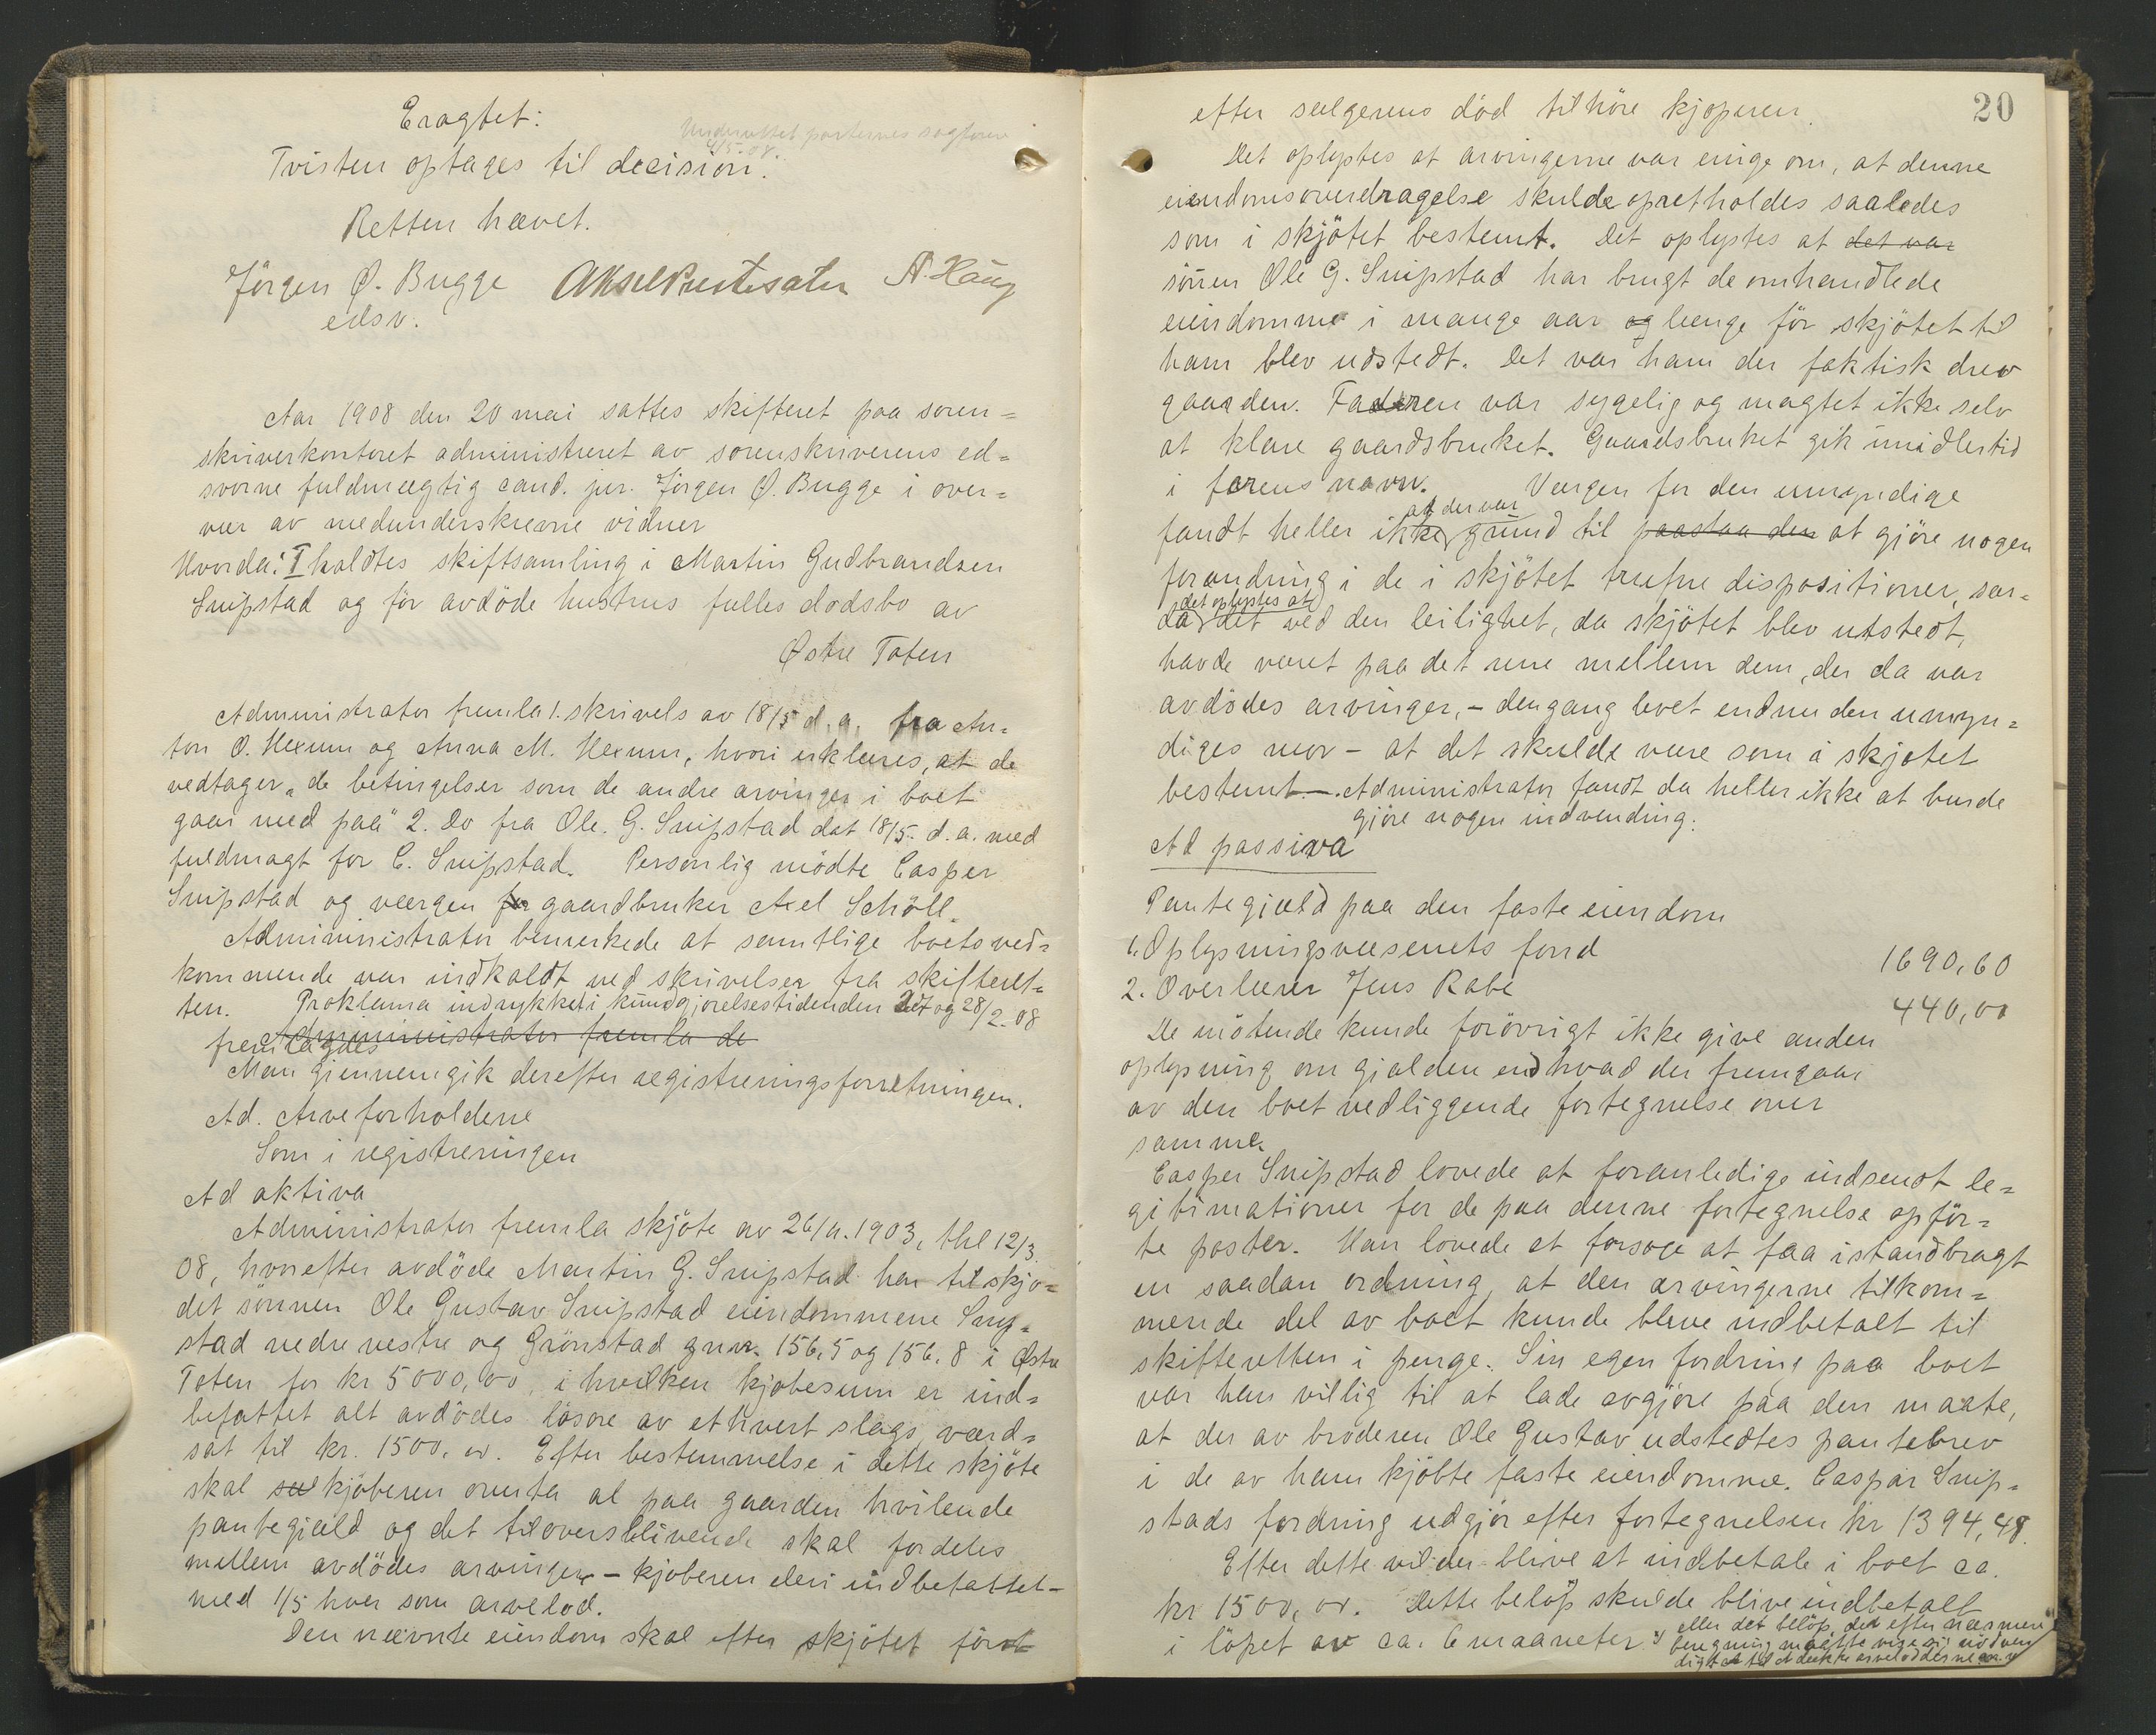 Eragtet:
Underrettet parternes sagförer
4/5-08.
Tvisten optages til decision.
Retten hævet.
Jörgen Ø. Bugge A. Haug
edsv.
Aar 1908 den 20 mai sattes skifteret paa soren=
skriverkontoret administreret av sorenskriverens ed=
svorne fuldmægtig cand. jur. Jörgen Ø. Bugge i over=
vær av medunderskrevne vidner
Hvorda: I holdtes skiftsamling i Martin Gudbrandsen
Snipstad og för avdöde hustrus fælles dodsbo av
Østre Toten
Administrator fremla 1. skrivels av 18/5 d.a. fra An=
ton O. Hexum og Anna M. Hexum, hvori erklæres, at de
vedtager „de betingelser som de andre arvinger i boet
gaar med paa" 2. Do fra Ole. G. Snipstad dat 18/5. d.a. med
fuldmagt for C. Snipstad. Personlig mödte Casper
Snipstad og værgen for gaardbruker Axel Schöll.
Administrator bemerkede at samtlige boets ved=
kommende var indkaldt ved skrivelser fra skifteret=
ten. Proklama indrykket i kundgjörelsestidenden og 28/2.08
fremlagdes Administrator fremla de
Man gjennemgik derefter registreringsforretningen.
Ad. Arveforholdene
Som i registreringen
Ad aktiva
Administrator fremla skjöte av 26/11.1903, thl 12/3.
08, hvorefter avdöde Martin G. Snipstad har tilskjö=
det sönnen Ole Gustav Snipstad eiendommene Snip=
stad nedre vestre og Grönstad gnr. 156,5 og 156,8 i Østre
Toten for kr 5000,00, i hvilken kjöbesum er ind=
befattet alt avdödes lösöre av ethvert slags, værd=
sat til kr. 1500,00. Efter bestemmelse i dette skjöte
skal sæl kjöberen overta al paa gaarden hvilende
pantegjæld og det tiloversblivende skal fordeles
mellem avdödes arvinger – kjöberen deri indbefattet –
med 1/5 hver som arvelod.
Den nævnte eiendom skal efter skjötet först
20
efter sælgerens död tilhöre kjöperen.
Det oplystes at arvingerne var enige om, at denne
eiendomsoverdragelse skulde opretholdes saaledes
som i skjötet bestemt. Det oplystes at det var
sönen Ole G. Snipstad har brugt de omhandlede
eiendomme i mange aar og længe för skjötet til
ham blev udstedt. Det var ham der faktisk drev
gaarden. Faderen var sygelig og magtet ikke selv
at klare gaardsbruket. Gaardsbruket gik imidlertid
i farens navn. Værgen for den umyndige
at der var
fandt heller ikke grund til paastaa den at gjöre nogen
forandring i de i skjötet trufne dispositioner, sær=
det oplystes at
da det ved den leilighet, da skjötet blev utstedt,
havde været paa det rene mellem dem, der da var
avdödes arvinger, – dengang levet endnu den umyn=
diges mor – at det skulde være som i skjötet
bestemt –. Administrator fandt da heller ikke at burde
gjöre nogen indvending.
Ad passiva
Pantegjæld paa den faste eiendom
1. Oplysningsvæsenets fond 1690,60
2. Overlærer Jens Rabe 440,00
De mötende kunde forövrigt ikke give anden
oplysning om gjælden end hvad der fremgaar
av den boet vedliggende fortegnelse over
samme.
Casper Snipstad lovede at foranledige indsendt le=
gitimationer for de paa denne fortegnelse opför=
te poster. Han lovede at forsöge at faa istandbragt
en saadan ordning, at den arvingerne tilkom=
mende del av boet kunde blive indbetalt til
skifteretten i penge. Sin egen fordring paa boet
var han villig til at lade avgjöre paa den maate,
at der av broderen Ole Gustav udstedtes pantebrev
i de av ham kjöbte faste eiendomme. Caspar Snip=
stads fordring udgjör efter fortegnelsen kr 1394,48.
Efter dette vil der blive at indbetale i boet ca.
kr 1500,00. Dette belöp skulde blive indbetalt
i löpet av ca. 6 maaneter
eller det belöp, det efter nærmere
beregning maatte vise sig nödven
digt til at dække arveloddene